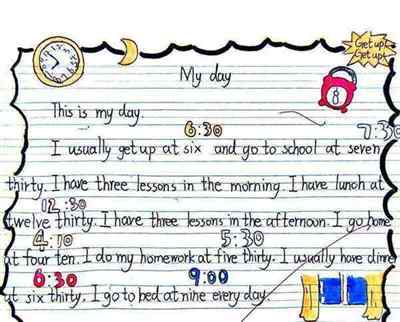 Get up!
Get up!
My day
8
This is my day.
6:30 7:30
I usually get up at six and go to school at seven
thirty. I have three lessons in the morning. I have lunch at
12:30
twelve thirty. I have three lessons in the afternoon. I go home
4:10 5:30
at four ten. I do my homework at five thirty. I usually have dinne
6:30 9:00
at six thirty. I go to bed at nine every day.